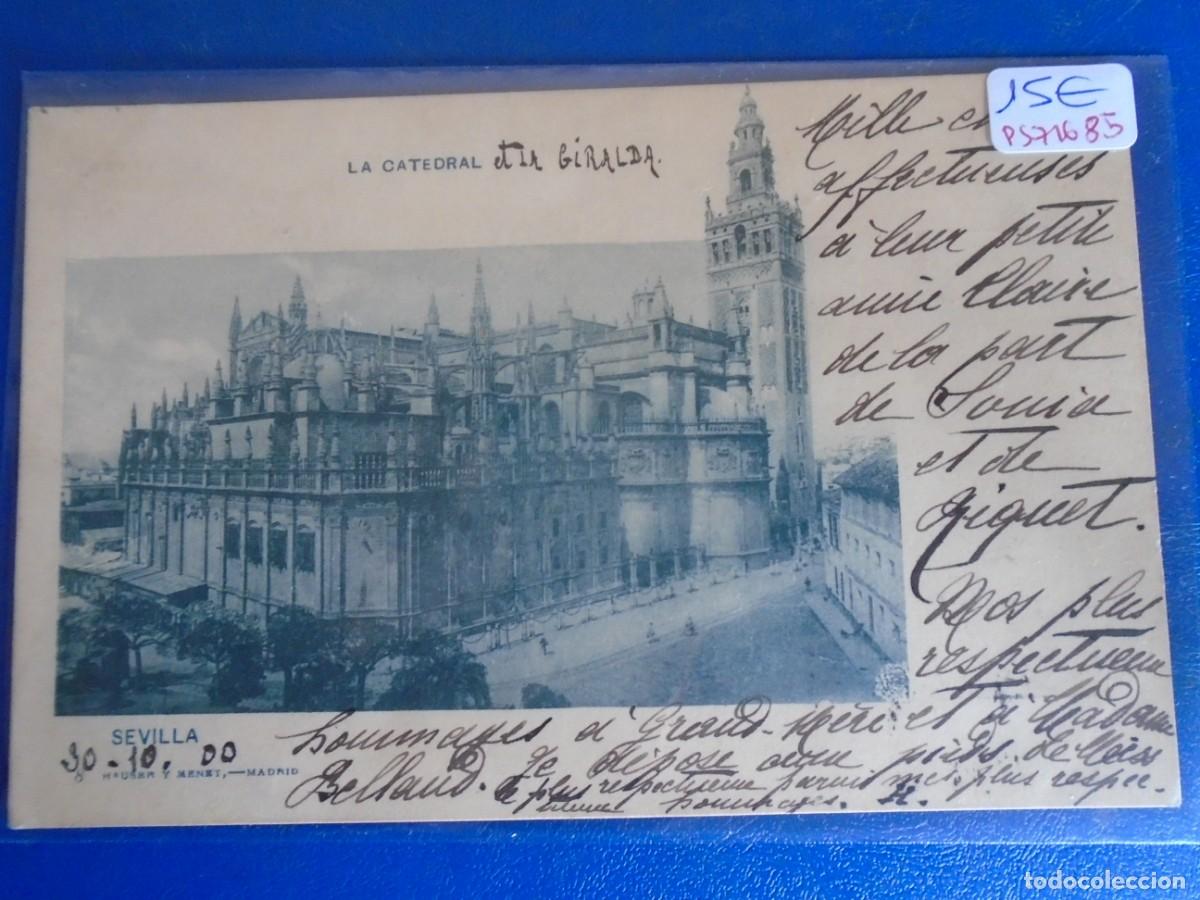 15€
PS71685
LA CATEDRAL et la GIRALDA.
Mille
affectueuses
à leur petite
amie Claire
de la part
de Sonia
et de
Riquet.
Mes plus
respectueux
hommages à Grand-Mère et à Madame
Belland. Je dépose aux pieds de
le plus respectueux parmi mes plus respec-
tueux hommages.
SEVILLA
30-10.00
HAUSER Y MENET,—MADRID
todocoleccion